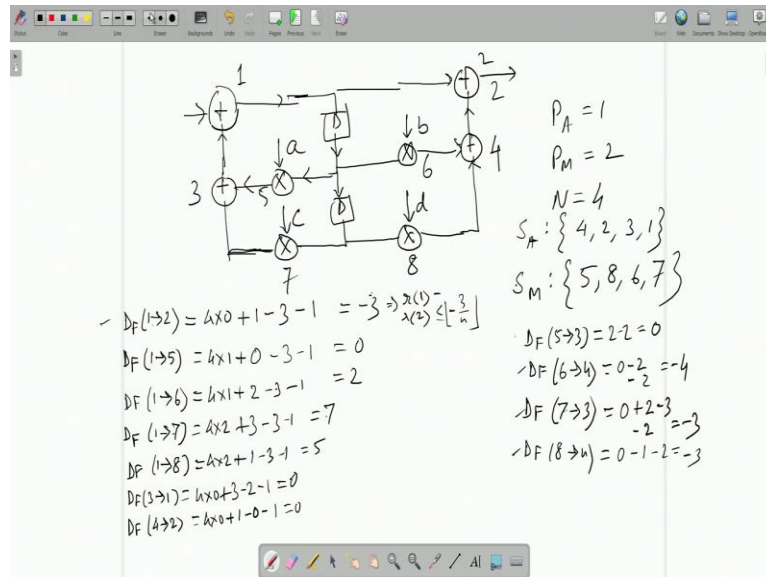 Stylus
Color
Line
Eraser
Backgrounds
Undo
Redo
Pages
Previous
Next
Erase
Board
Web
Documents
Show Desktop
OpenBoard
1
+
D
2
+
2
a
b
3
+
5
X
X
6
+
4
D
c
d
X
X
7
8
P_A = 1
P_M = 2
N = 4
S_A : { 4, 2, 3, 1 }
S_M : { 5, 8, 6, 7 }
D_F (1→2) = 4x0 + 1 - 3 - 1 = -3 ⇒ r(1) - r(2) ≤ ⌊-3/4⌋
D_F (1→5) = 4x1 + 0 - 3 - 1 = 0
D_F (1→6) = 4x1 + 2 - 3 - 1 = 2
D_F (1→7) = 4x2 + 3 - 3 - 1 = 7
D_F (1→8) = 4x2 + 1 - 3 - 1 = 5
D_F (3→1) = 4x0 + 3 - 2 - 1 = 0
D_F (4→2) = 4x0 + 1 - 0 - 1 = 0
D_F (5→3) = 2 - 2 = 0
D_F (6→4) = 0 - 2 - 2 = -4
D_F (7→3) = 0 + 2 - 3 - 2 = -3
D_F (8→4) = 0 - 1 - 2 = -3
AI